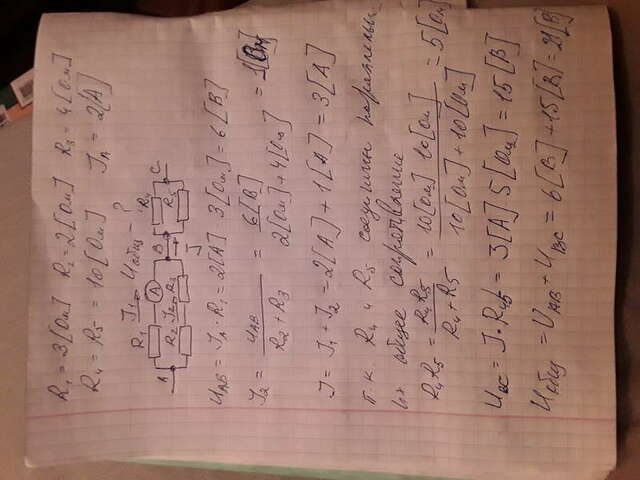 R₁ = 3[Ом] R₂ = 2[Ом] R₃ = 4[Ом]
R₄ = R₅ = 10[Ом] Jₐ = 2[A]
Uобщ - ?
A R₁ J₁ A B R₄ C
R₂ J₂ R₃ J R₅
UAB = Jₐ · R₁ = 2[A] 3[Ом] = 6[В]
J₂ = UAB / R₂ + R₃ = 6[В] / 2[Ом] + 4[Ом] = 1
J = J₁ + J₂ = 2[A] + 1[A] = 3[A]
т. к. R₄ и R₅ соединены
их общее сопротивление
R₄R₅ = R₄R₅ / R₄ + R₅ = 10[Ом] 10[Ом] / 10[Ом] + 10[Ом] = 5[Ом]
UBC = J · R₄₅ = 3[A] 5[Ом] = 15[В]
Uобщ = UAB + UBC = 6[В] + 15[В] = 21[В]